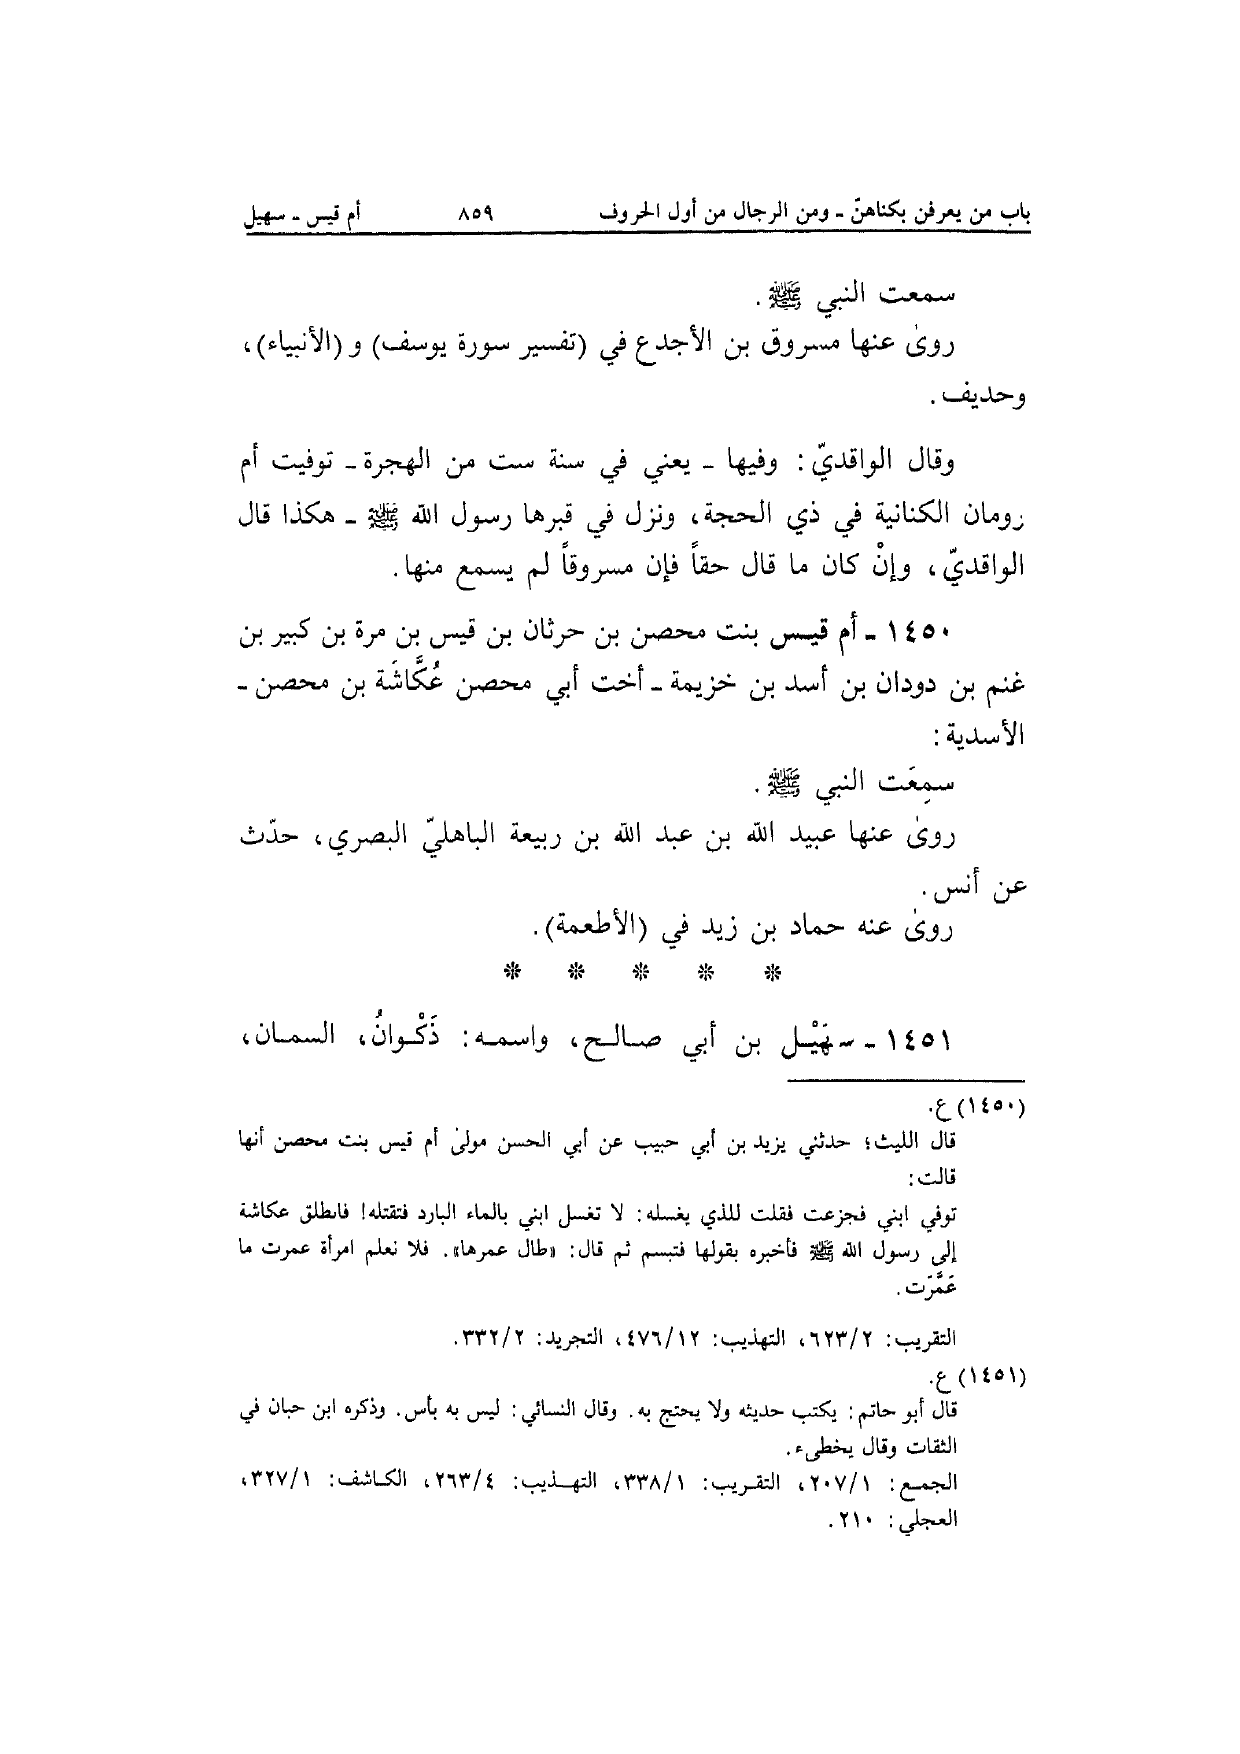 باب من يعرفن بكناهنّ ـ ومن الرجال من أول الحروف ٨٥٩ أم قيس ـ سهيل
سمعت النبي ﷺ.
روىٰ عنها مسروق بن الأجدع في (تفسير سورة يوسف) و (الأنبياء)،
وحديف.
وقال الواقديّ: وفيها ـ يعني في سنة ست من الهجرة ـ توفيت أم
رومان الكنانية في ذي الحجة، ونزل في قبرها رسول الله ﷺ ـ هكذا قال
الواقديّ، وإنْ كان ما قال حقاً فإن مسروقاً لم يسمع منها.
١٤٥٠ ـ أم قيس بنت محصن بن حرثان بن قيس بن مرة بن كبير بن
غنم بن دودان بن أسد بن خزيمة ـ أخت أبي محصن عُكَّاشَة بن محصن ـ
الأسدية:
سمِعَت النبي ﷺ.
روىٰ عنها عبيد الله بن عبد الله بن ربيعة الباهليّ البصري، حدّث
عن أنس.
روىٰ عنه حماد بن زيد في (الأطعمة).
* * * * *
١٤٥١ ـ سهَيْل بن أبي صالح، واسمه: ذَكْوانُ، السمان،
(١٤٥٠) ع.
قال الليث؛ حدثني يزيد بن أبي حبيب عن أبي الحسن مولىٰ أم قيس بنت محصن أنها
قالت:
توفي ابني فجزعت فقلت للذي يغسله: لا تغسل ابني بالماء البارد فتقتله! فانطلق عكاشة
إلى رسول الله ﷺ فأخبره بقولها فتبسم ثم قال: «طال عمرها». فلا نعلم امرأة عمرت ما
عَمَّرَت.
التقريب: ٦٢٣/٢، التهذيب: ٤٧٦/١٢، التجريد: ٣٣٢/٢.
(١٤٥١) ع.
قال أبو حاتم: يكتب حديثه ولا يحتج به. وقال النسائي: ليس به بأس. وذكره ابن حبان في
الثقات وقال يخطىء.
الجمع: ٢٠٧/١، التقريب: ٣٣٨/١، التهذيب: ٢٦٣/٤، الكاشف: ٣٢٧/١،
العجلي: ٢١٠.